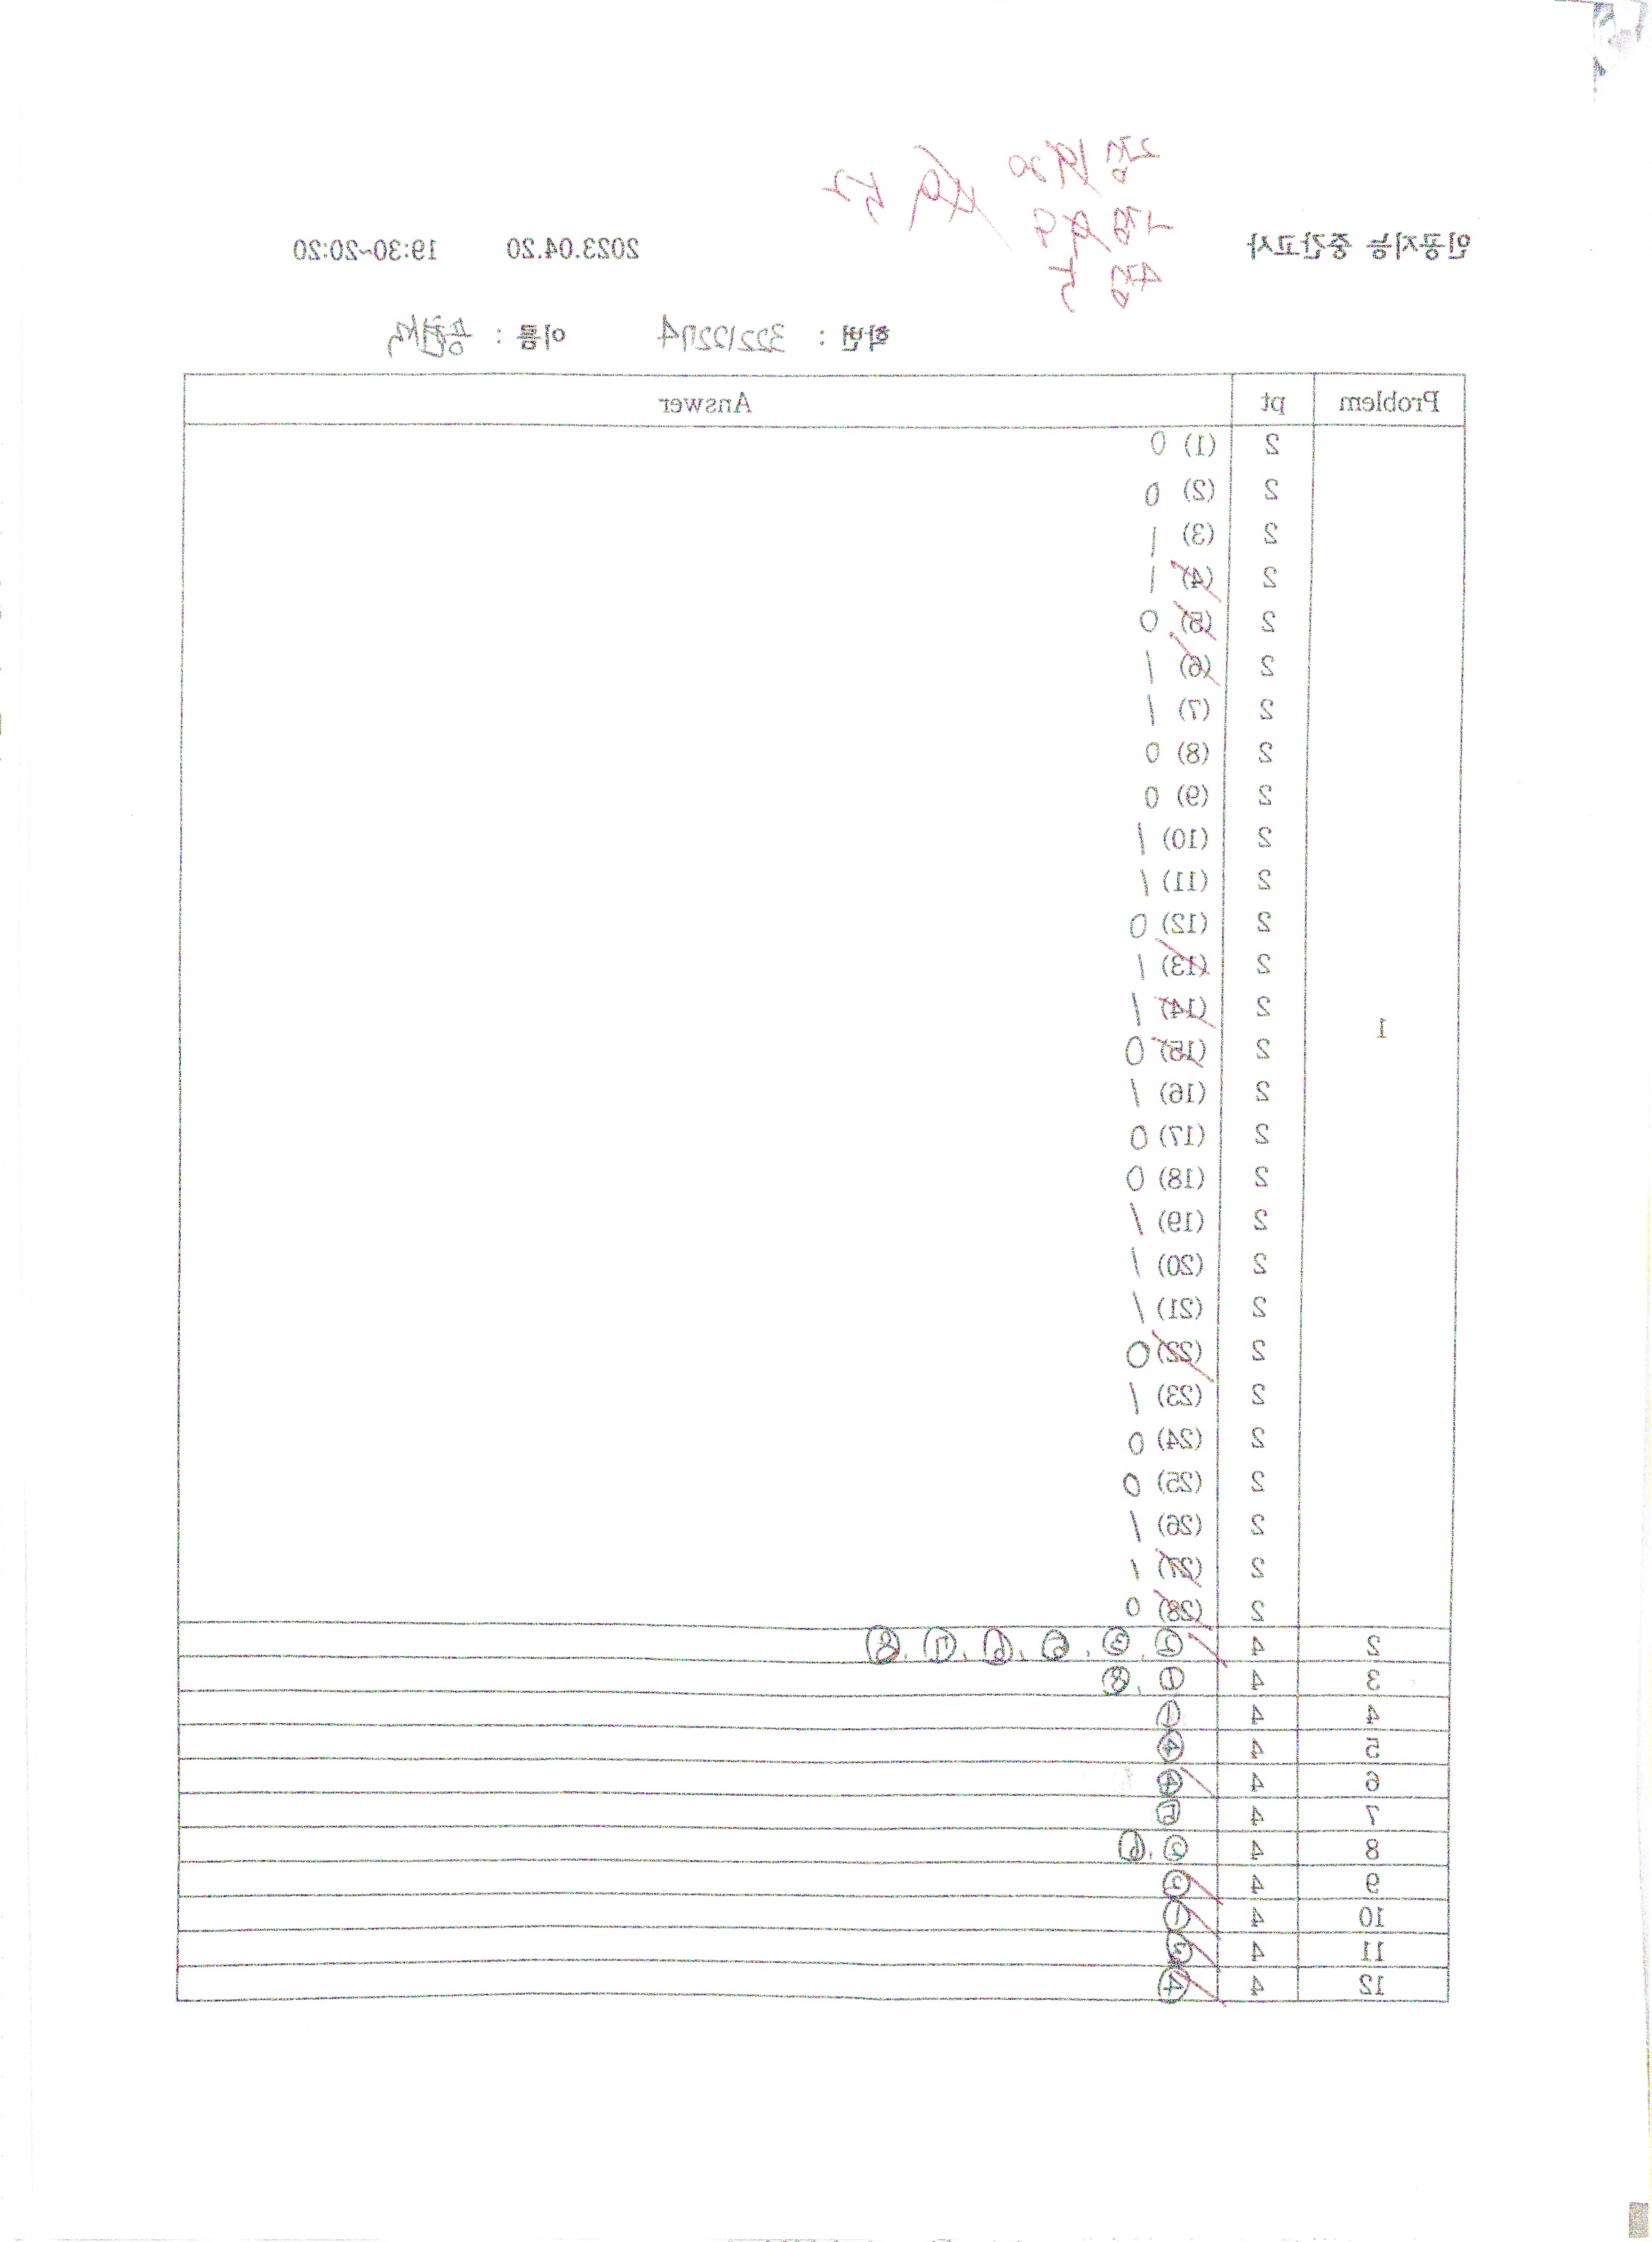 2점 20
1점 9
4점 5
인공지능 중간고사 2023.04.20 19:30~20:20
학번 : 이름 :
Problem pt Answer
1
2 (1) 0
2 (2) 0
2 (3) 1
2 (4) 1
2 (5) 0
2 (6) 1
2 (7) 1
2 (8) 0
2 (9) 0
2 (10) 1
2 (11) 1
2 (12) 0
2 (13) 1
2 (14) 1
2 (15) 0
2 (16) 1
2 (17) 0
2 (18) 0
2 (19) 1
2 (20) 1
2 (21) 1
2 (22) 0
2 (23) 1
2 (24) 0
2 (25) 0
2 (26) 1
2 (27) 1
2 (28) 0
2 4 ②, ③, ⑤, ⑥, ⑦, ⑧
3 4 ①, ⑧
4 4 ①
5 4 ④
6 4 ④
7 4 ⑤
8 4 ②, ⑥
9 4 ③
10 4 ①
11 4 ③
12 4 ④